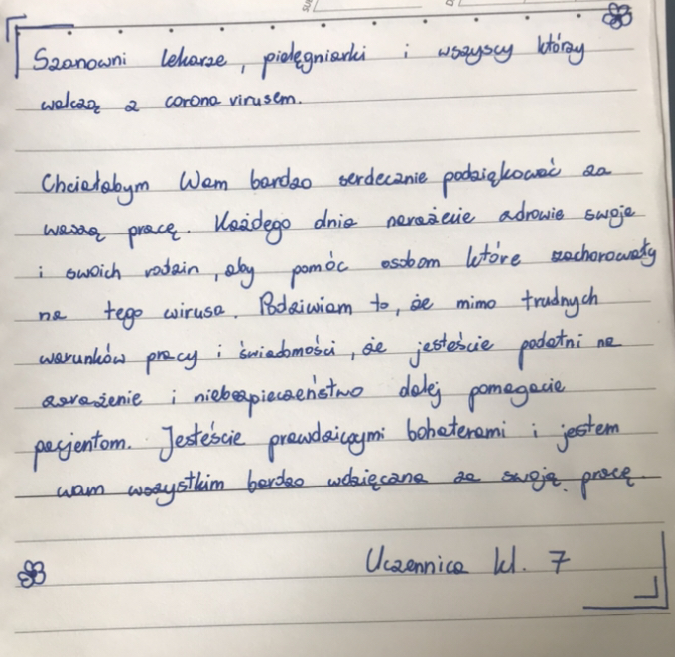 Szanowni lekarze, pielęgniarki i wszyscy którzy
walczą z corona virusem.
Chciałabym Wam bardzo serdecznie podziękować za
waszą pracę. Każdego dnia narażcie zdrowie swoje
i swoich rodzin, aby pomóc osobom które zachorowały
na tego wirusa. Podziwiam to, że mimo trudnych
warunków pracy i świadomości, że jesteście podatni na
zarażenie i niebezpieczeństwo dalej pomagacie
pacjentom. Jesteście prawdziwymi bohaterami i jestem
wam wszystkim bardzo wdzięczna za swoją pracę.
Uczennica kl. 7